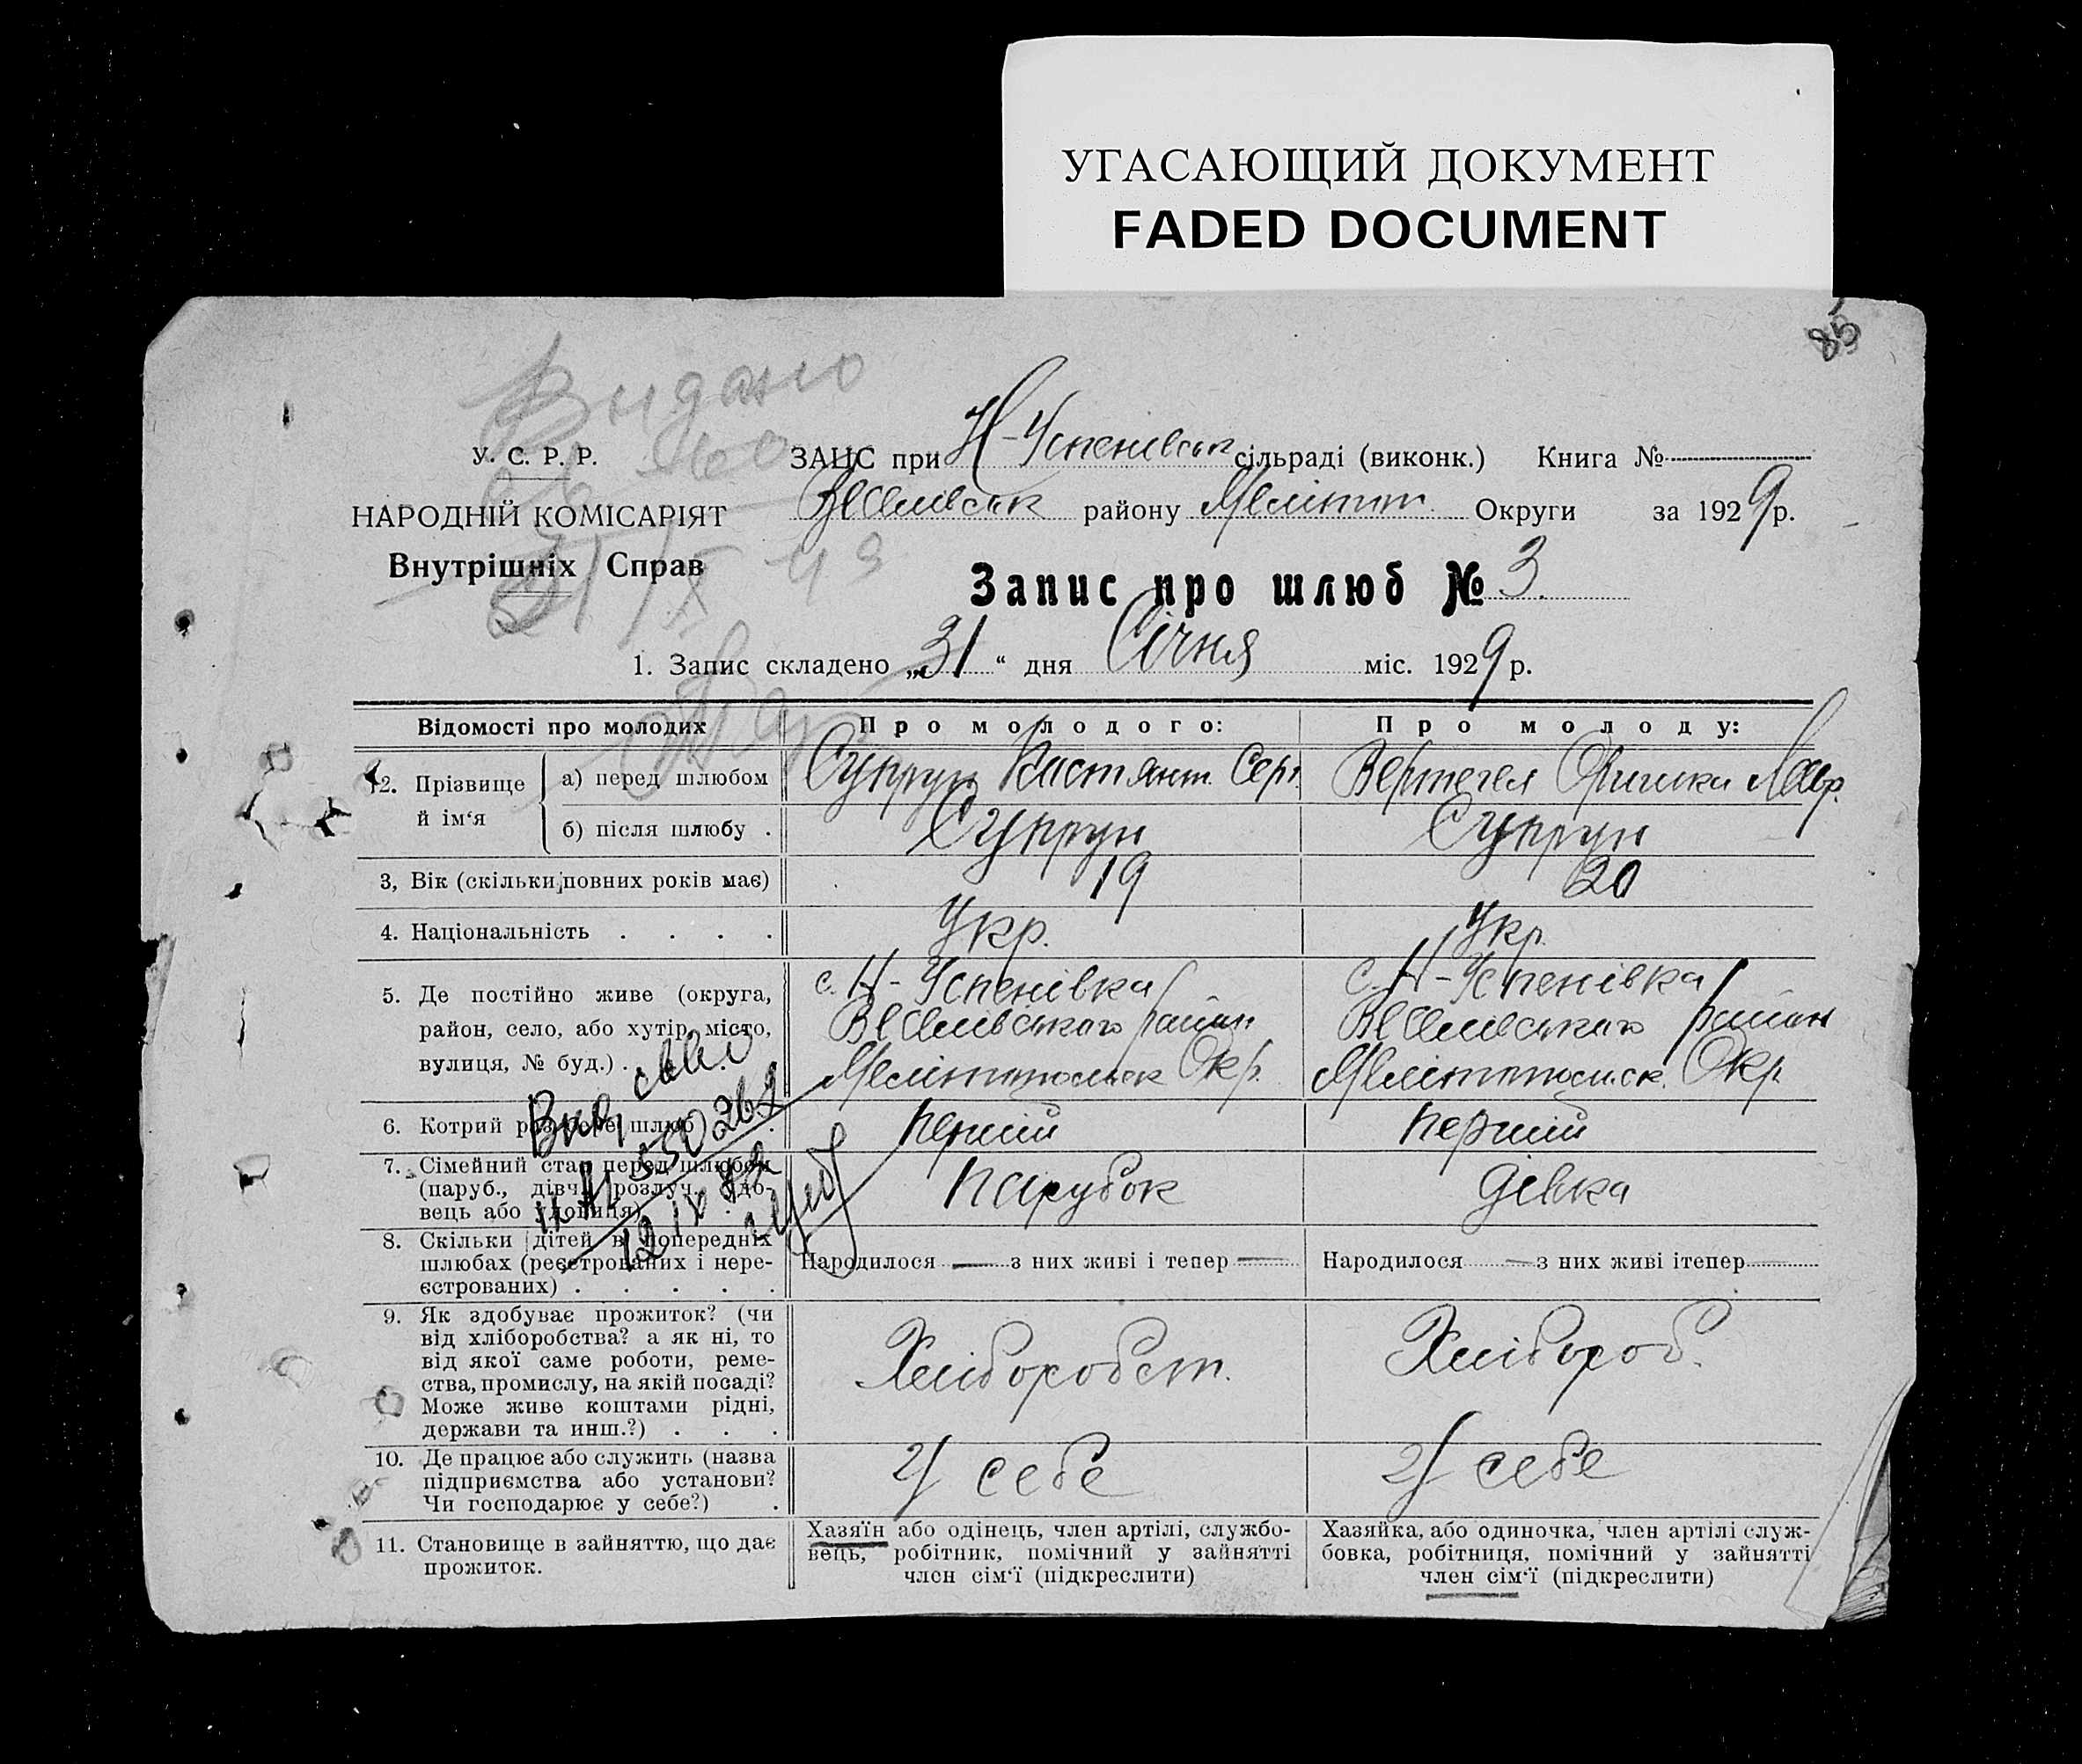 УГАСАЮЩИЙ ДОКУМЕНТ
FADED DOCUMENT
85
Видано
У. С. Р. Р.
НАРОДНІЙ КОМІСАРІЯТ
Внутрішніх Справ
ЗАЦС при Н-Успенівськ сільраді (виконк.) Книга №
Веселівськ району Мелітоп. Округи за 1929 р.
Запис про шлюб № 3.
1. Запис складено „31“ дня Січня міс. 1929 р.
Відомості про молодих
Про молодого:
Про молоду:
2. Прізвище й ім‘я
а) перед шлюбом
Супрун Костянт. Серг.
Вертегел Оришки Лавр.
б) після шлюбу .
Супрун
Супрун
3, Вік (скільки повних років має)
19
20
4. Національність . . . .
Укр.
Укр.
5. Де постійно живе (округа,
район, село, або хутір, місто,
вулиця, № буд.) .
с. Н-Успенівка
Веселивського район
Мелітопольск Окр.
с. Н-Успенівка
Веселивського район
Мелітопольск. Окр.
6. Котрий раз бере шлюб
перший
перший
7. Сімейний стан перед шлюбом
(паруб., дівч., розлуч., удо-
вець або удовиця)
парубок
дівка
8. Скільки дітей в попередніх
шлюбах (реєстрованих і нере-
єстрованих) . . . . .
Народилося — з них живі і тепер —
Народилося — з них живі ітепер
9. Як здобуває прожиток? (чи
від хліборобства? а як ні, то
від якої саме роботи, реме-
ства, промислу, на якій посаді?
Може живе коштами рідні,
держави та инш.?) . . .
Хліборобст.
Хлібороб.
10. Де працює або служить (назва
підприємства або установи?
Чи господарює у себе?) .
У себе
У себе
11. Становище в зайняттю, що дає
прожиток.
Хазяїн або одінець, член артілі, службо-
вець, робітник, помічний у зайнятті
член сім‘ї (підкреслити)
Хазяйка, або одиночка, член артілі служ-
бовка, робітниця, помічний у зайнятті
член сім‘ї (підкреслити)